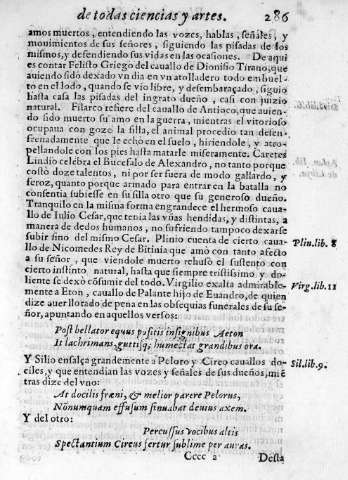 de todas ciencias y artes. 286
amos muertos, entendiendo las vozes, hablas, señales, y
mouimientos de sus señores, siguiendo las pisadas de los
mismos, y defendiendo sus vidas en las ocasiones. De aqui
es contar Felisto Griego del cauallo de Dionisio Tirano, que
auiendo sido dexado vn dia en vn atolladero todo embuel-
to en el lodo, quando se vio libre, y desembaraçado, siguio
hasta casa las pisadas del ingrato dueño, casi con juizio
natural. Filarco refiere del cauallo de Antioco, que auien-
do sido muerto su amo en la guerra, mientras el vitorioso
ocupaua con gozo la silla, el animal procedio tan desen-
frenadamente que le echò en el suelo, hiriendole, y atro-
pellandole con los pies hasta matarle miseramente. Caretes
Lindio celèbra el Bucefalo de Alexandro, no tanto porque
costò doze talentos, ni por ser fuera de modo gallardo, y
feroz, quanto porque armado para entrar en la batalla no
consentia subiesse en su silla otro que su generoso dueño.
Tranquilo en la misma forma engrandece el hermoso caua-
llo de Iulio Cesar, que tenia las vñas hendidas, y distintas, a
manera de dedos humanos, no sufriendo tampoco dexarse
subir sino del mismo Cesar. Plinio cuenta de cierto caua-
llo de Nicomedes Rey de Bitinia que amò con tanto afecto
a su señor, que viendole muerto rehusò el sustento con
cierto instinto natural, hasta que siempre tristissimo y do-
liente se dexò cõsumir del todo. Virgilio exalta admirable-
mente a Eton, cauallo de Palante hijo de Euandro, de quien
dize auer llorado de pena en las obsequias funerales de su se-
ñor, apuntando en aquellos versos:
Plin. lib. 8
Virg. lib. 11
Post bellator equus positis insignibus Aeton
It lachrimans, guttisq; humectat grandibus ora.
Y Silio ensalça grandemente a Peloro y Cirro cauallos do-
ciles, y que entendian las vozes y señales de sus dueños, miẽ
tras dize del vno:
Sil. lib. 9.
At docilis fræni, & melior parere Pelorus,
Nõnumquam effusum sinuabat deuius axem.
Y del otro:
Percussus vocibus altis
Spectantium Circus fertur sublime per auras.
Cccc 2 Desta